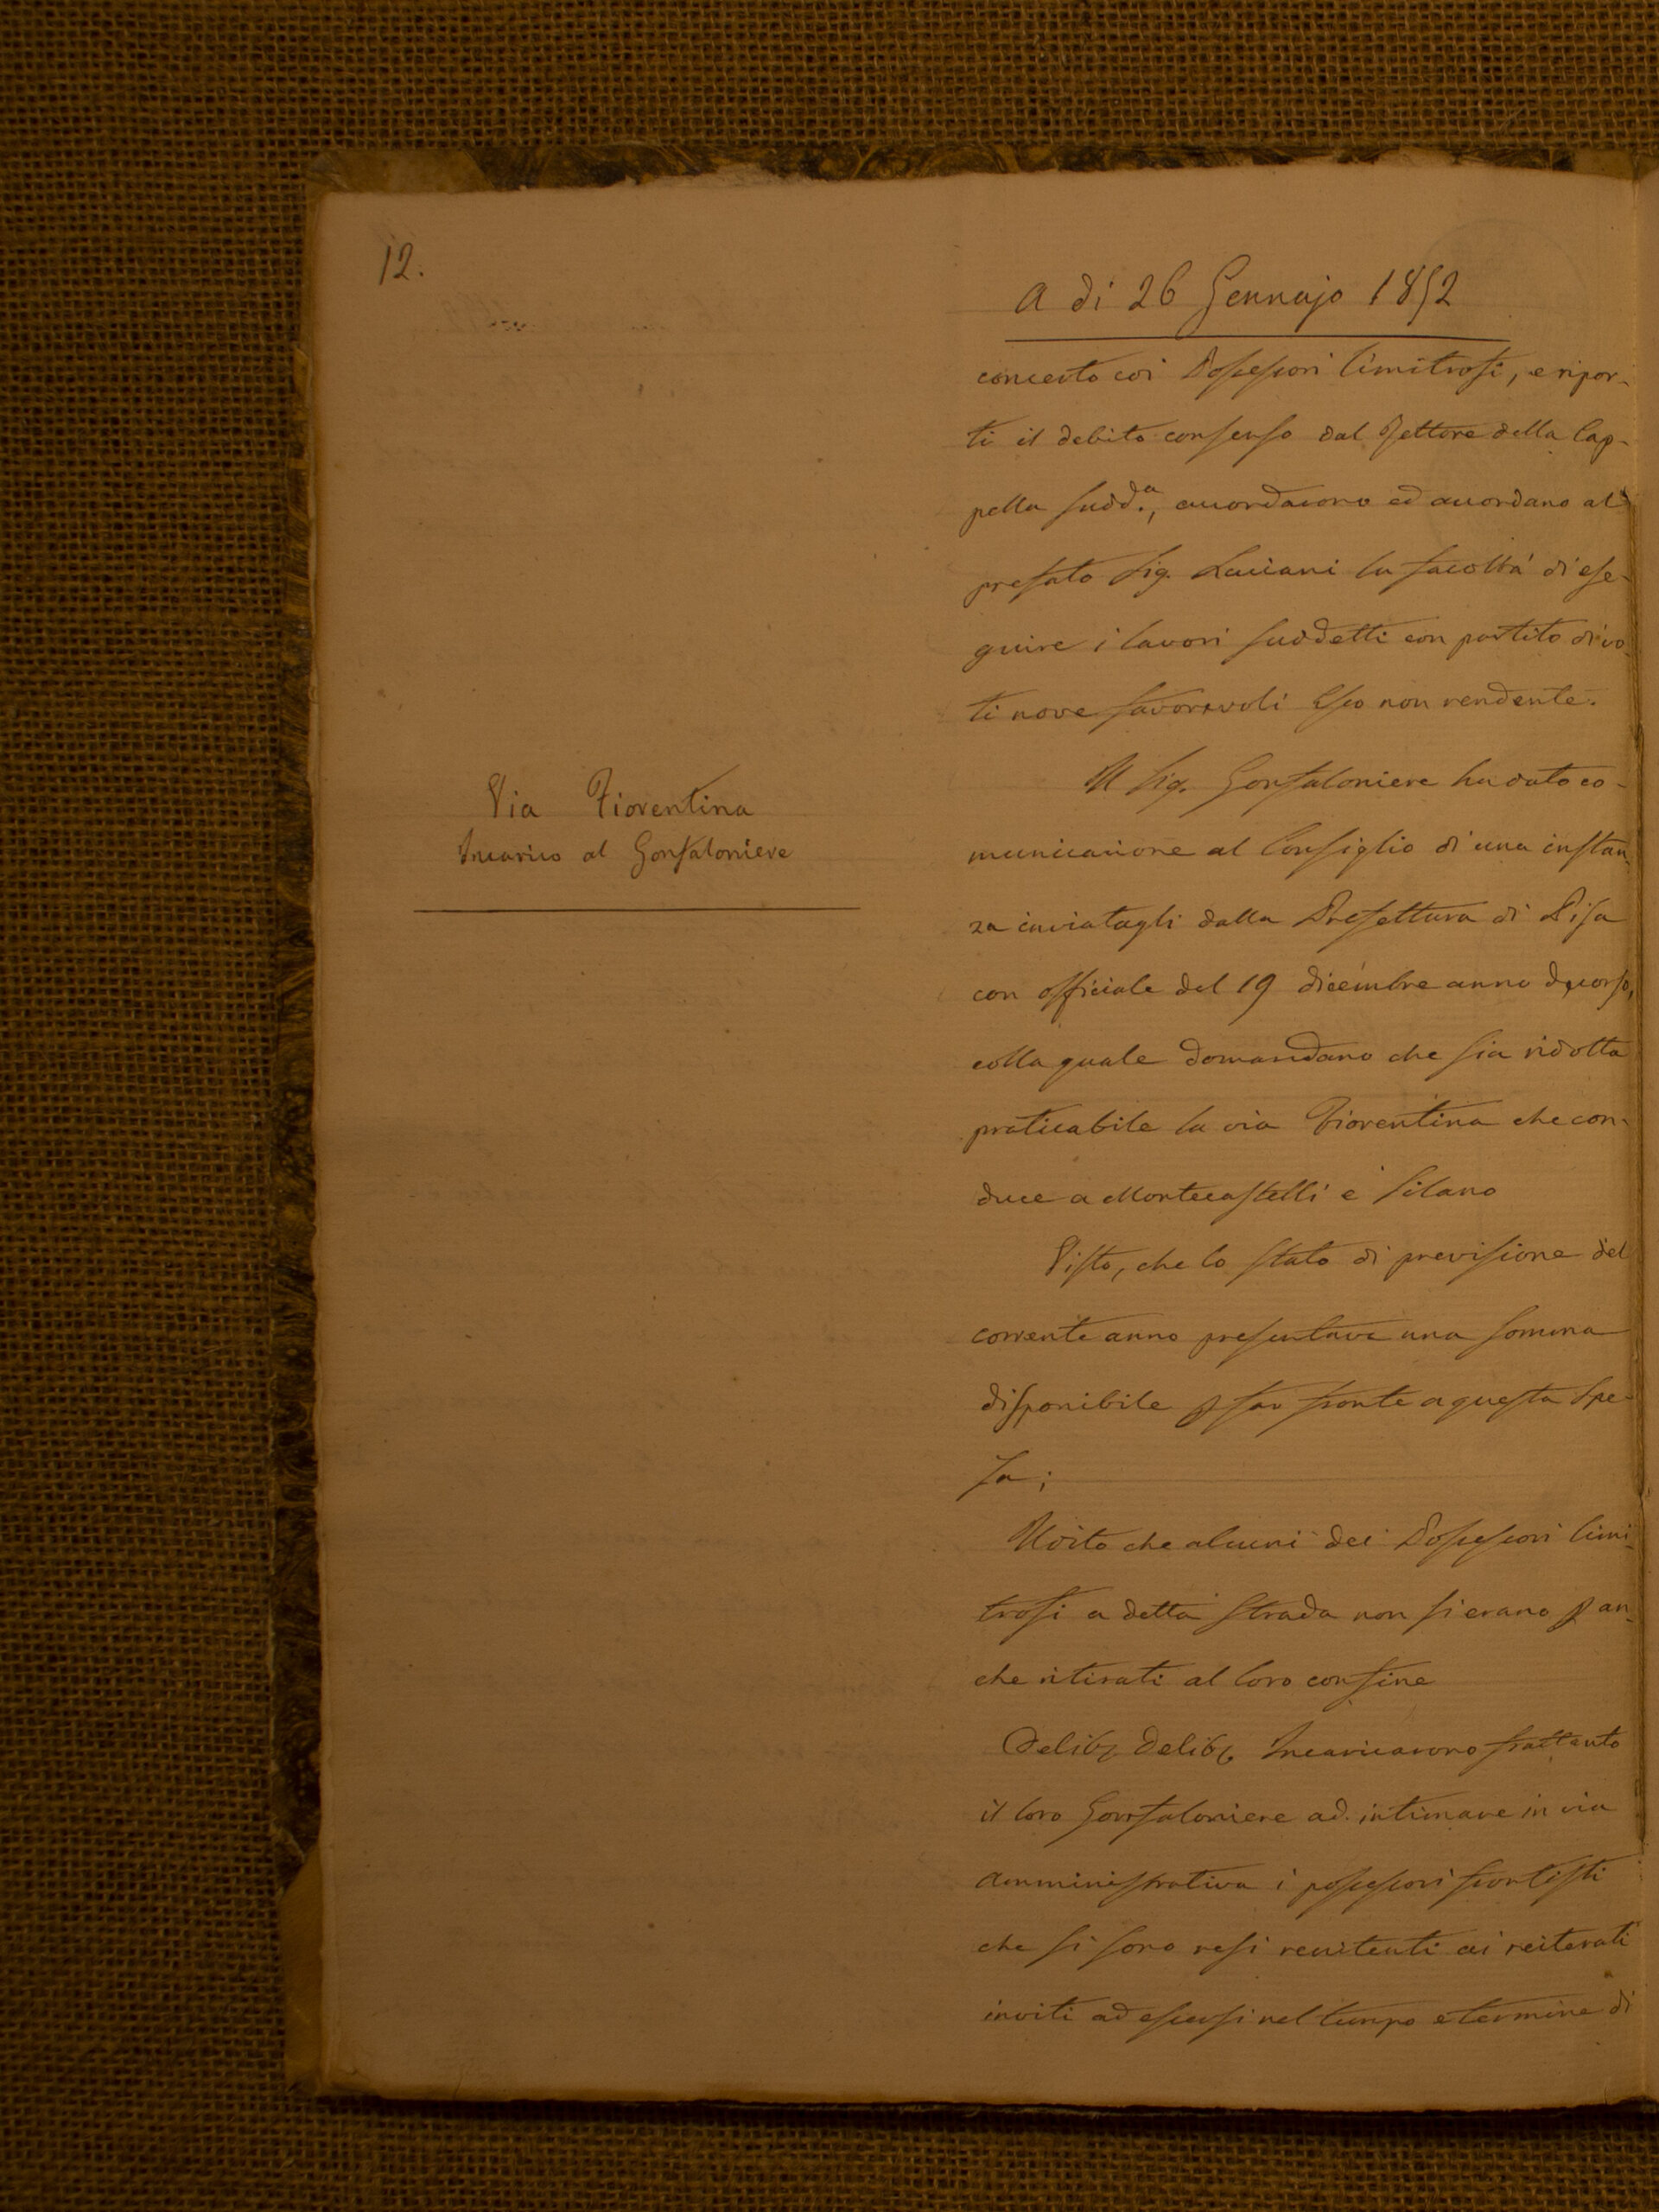 12.
A dì 26 Gennajo 1852
concerto coi Possessori limitrofi, e ripor-
ti il debito consenso dal Rettore della Cap-
pella sudd.a, accordarono ed accordano al
prefato Sig. Luciani la facoltà di ese-
guire i lavori suddetti con partito di vo-
ti nove favorevoli Esso non rendente.
Via Fiorentina
Incarico al Gonfaloniere
Il Sig. Gonfaloniere ha dato co-
municazione al Consiglio di una instan-
za inviatagli dalla Prefettura di Pisa
con officiale del 19 dicembre anno decorso,
colla quale domandano che sia ridotta
praticabile la via Fiorentina che con-
duce a Montecastelli e Silano
Visto, che lo stato di previsione del
corrente anno presentava una somma
disponibile p far fronte a questa spe-
sa;
Udito che alcuni dei Possessori limi-
trofi a detta strada non si erano p an-
che ritirati al loro confine
Delib. Delib. Incaricarono frattanto
il loro Gonfaloniere ad intimare in via
amministrativa i possessori frontisti
che si sono resi renitenti ai reiterati
inviti ad essersi nel tempo e termine di